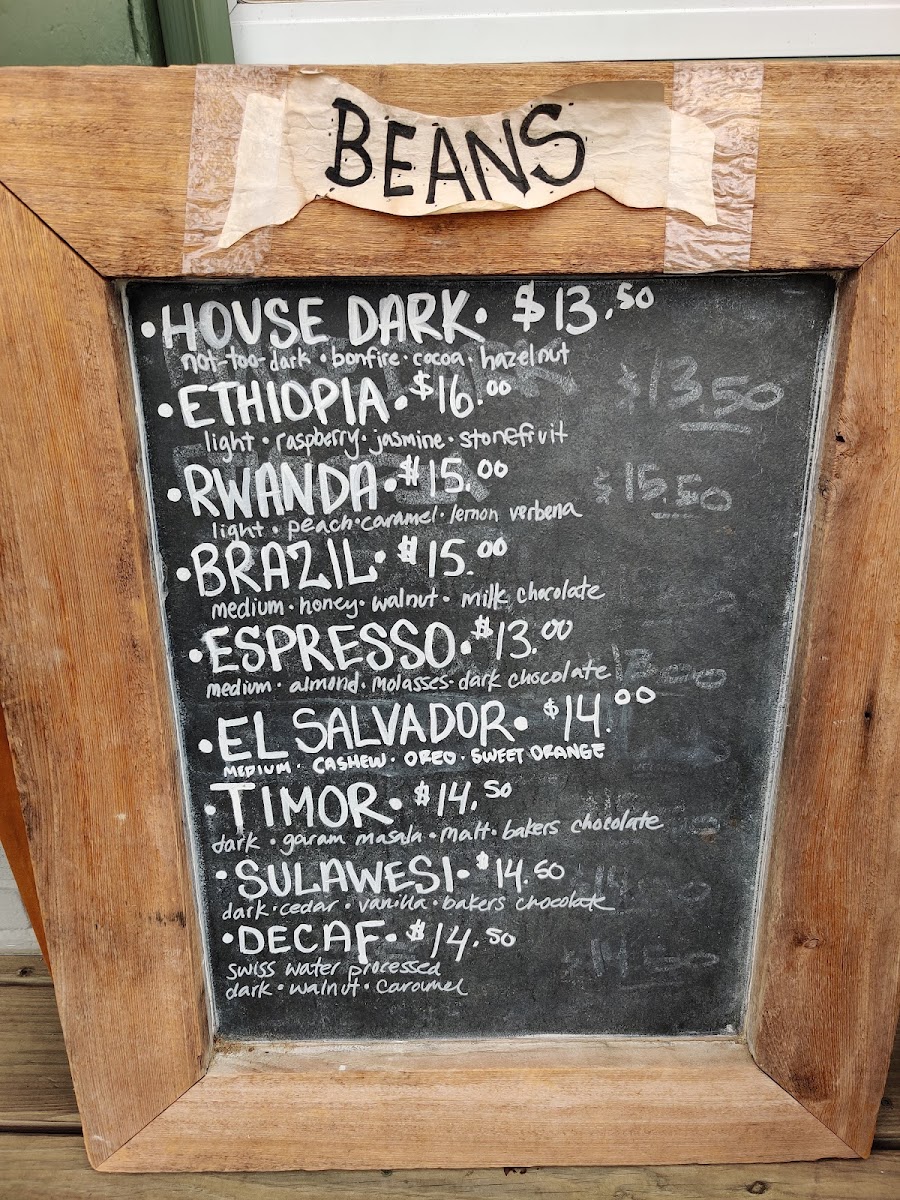 BEANS
• HOUSE DARK • $13.50
not-too-dark • bonfire • cocoa • hazelnut
$13.50
• ETHIOPIA • $16.00
light • raspberry • jasmine • stonefruit
• RWANDA • $15.00
$15.50
light • peach • caramel • lemon verbena
• BRAZIL • $15.00
medium • honey • walnut • milk chocolate
• ESPRESSO • $13.00
medium • almond • molasses • dark chocolate
13.00
• EL SALVADOR • $14.00
MEDIUM • CASHEW • OREO • SWEET ORANGE
• TIMOR • $14.50
dark • garam masala • malt • bakers chocolate
• SULAWESI • $14.50
dark • cedar • vanilla • bakers chocolate
• DECAF • $14.50
swiss water processed
14.50
dark • walnut • caramel